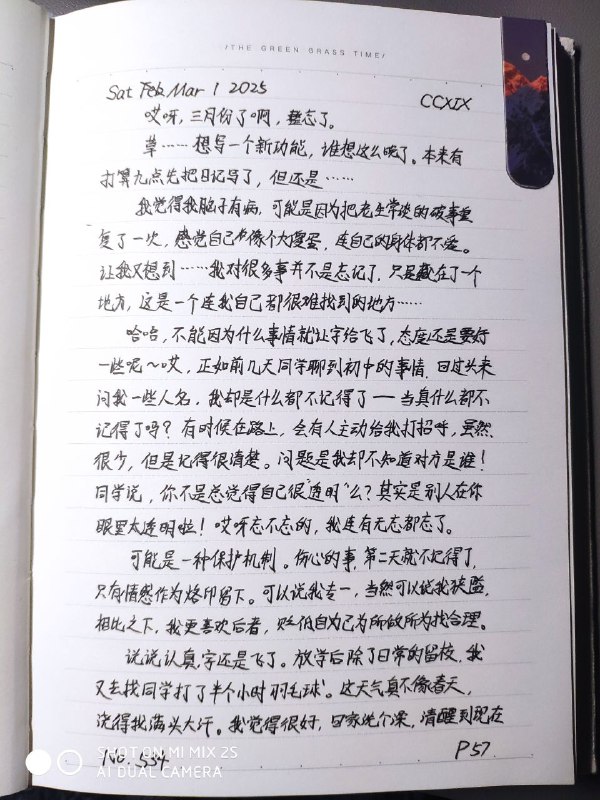 /THE GREEN GRASS TIME/
Sat Feb Mar 1 2025
CCXIX
哎呀，三月份了啊，整忘了。
草……想写一个新功能，谁想这么晚了。本来有
打算九点先把日记写了，但还是……
我觉得我脑子有病，可能是因为把老生常谈的破事重
复了一次，感觉自己像个大傻蛋，连自己的身体都不爱。
让我又想到……我对很多事并不是忘记了，只是藏在了一个
地方，这是一个连我自己都很难找到的地方……
哈哈，不能因为什么事情就让字给飞了，态度还是要好
一些呢～哎，正如前几天同学聊到初中的事情，回过头来
问我一些人名，我却是什么都不记得了——当真什么都不
记得了吗？有时候在路上，会有人主动给我打招呼，虽然
很少，但是记得很清楚。问题是我却不知道对方是谁！
同学说，你不是总觉得自己很"透明"么？其实是别人在你
眼里太透明啦！哎呀忘不忘的，我连有无忘都忘了。
可能是一种保护机制。伤心的事，第二天就不记得了，
只有情感作为烙印留下。可以说我专一，当然可以说我狭隘，
相比之下，我更喜欢后者，贬低自为己为所做所为找合理。
说说认真，字还是飞了。放学后除了日常的留校，我
又去找同学打了半个小时羽毛球。这天气真不像春天，
浇得我满头大汗。我觉得很好，回家洗个澡，清醒到现在
No. 534
P57
SHOT ON MI MIX 2S
AI DUAL CAMERA